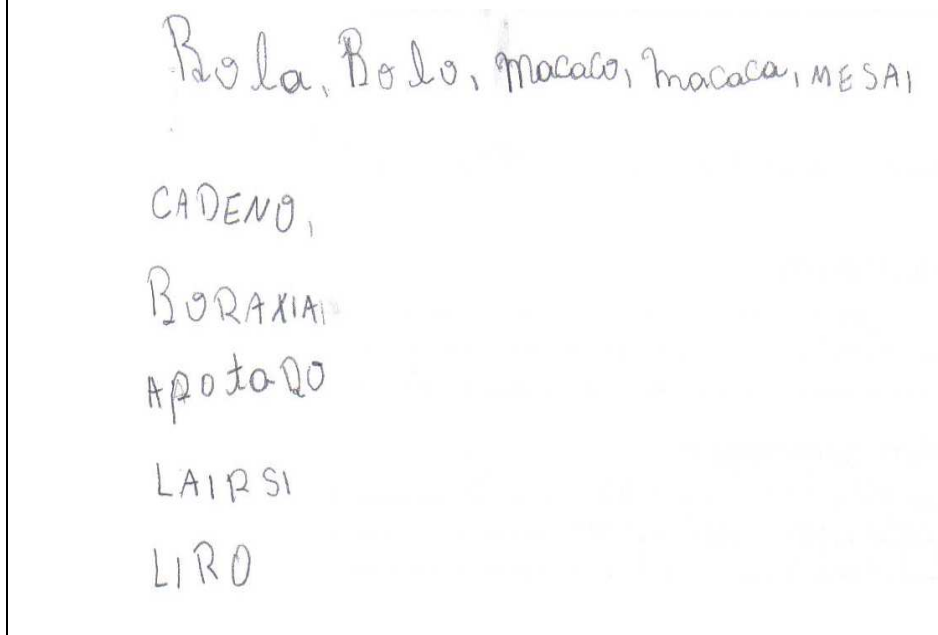 Bola, Bolo, macaco, macaca, MESA,
CADENO,
BORAXIA,
APOtaDO
LAIPSI
LIRO